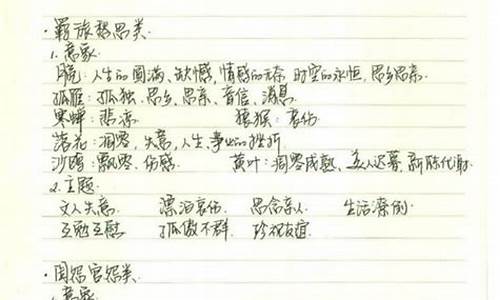 ·羁旅愁思类.
1.意象
月亮:人生的圆满、缺憾,情感的无奈 时空的永恒,思乡思亲.
孤雁:孤独、思乡、思亲、音信、消息
寒蝉:悲凉. 猿猴:哀伤
落花:凋零,失意,人生、事业的挫折
沙鸥:飘零、伤感 黄叶:凋零成熟、美人迟暮,新陈代谢.
2.主题
文人失意. 漂泊哀伤. 思念亲人 生活潦倒.
互勉互慰 孤傲不群. 珍视友谊.
·闺怨宫怨类
1.意象